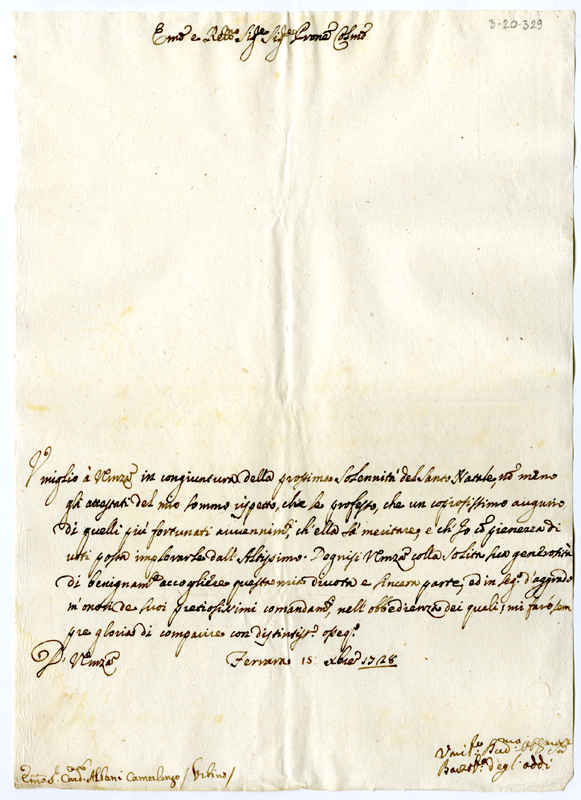 3-20-329
Emo e Revmo Sigre Sigre Prone Colmo
Umiglio à V. Emza in congiuntura della prossima Solennità del Santo Natale, nõ meno
gli attestati del mio sommo rispetto, che le professo, che un copiosissimo augurio
di quelli più fortunati avvenimti, ch'ella sà meritare, e ch'Io cõ pienezza di
voti possa implorarle dall'Altissimo. Degnisi V. Emza colla solita sua generosità
di benignamte accogliere questa mia divota e sincera parte, ed in segno d'aggrado
m'onori de suoi pretiosissimi comandamti, nell'obbedienza dei quali, mi farò sem
pre gloria di comparire con distintissmo osseqo
D. V. Emza Ferrara 15 Xbre 1728
Umilmo Servre
degl'Oddi
Emo Sr Card. Albani Camerlengo / Urbino /